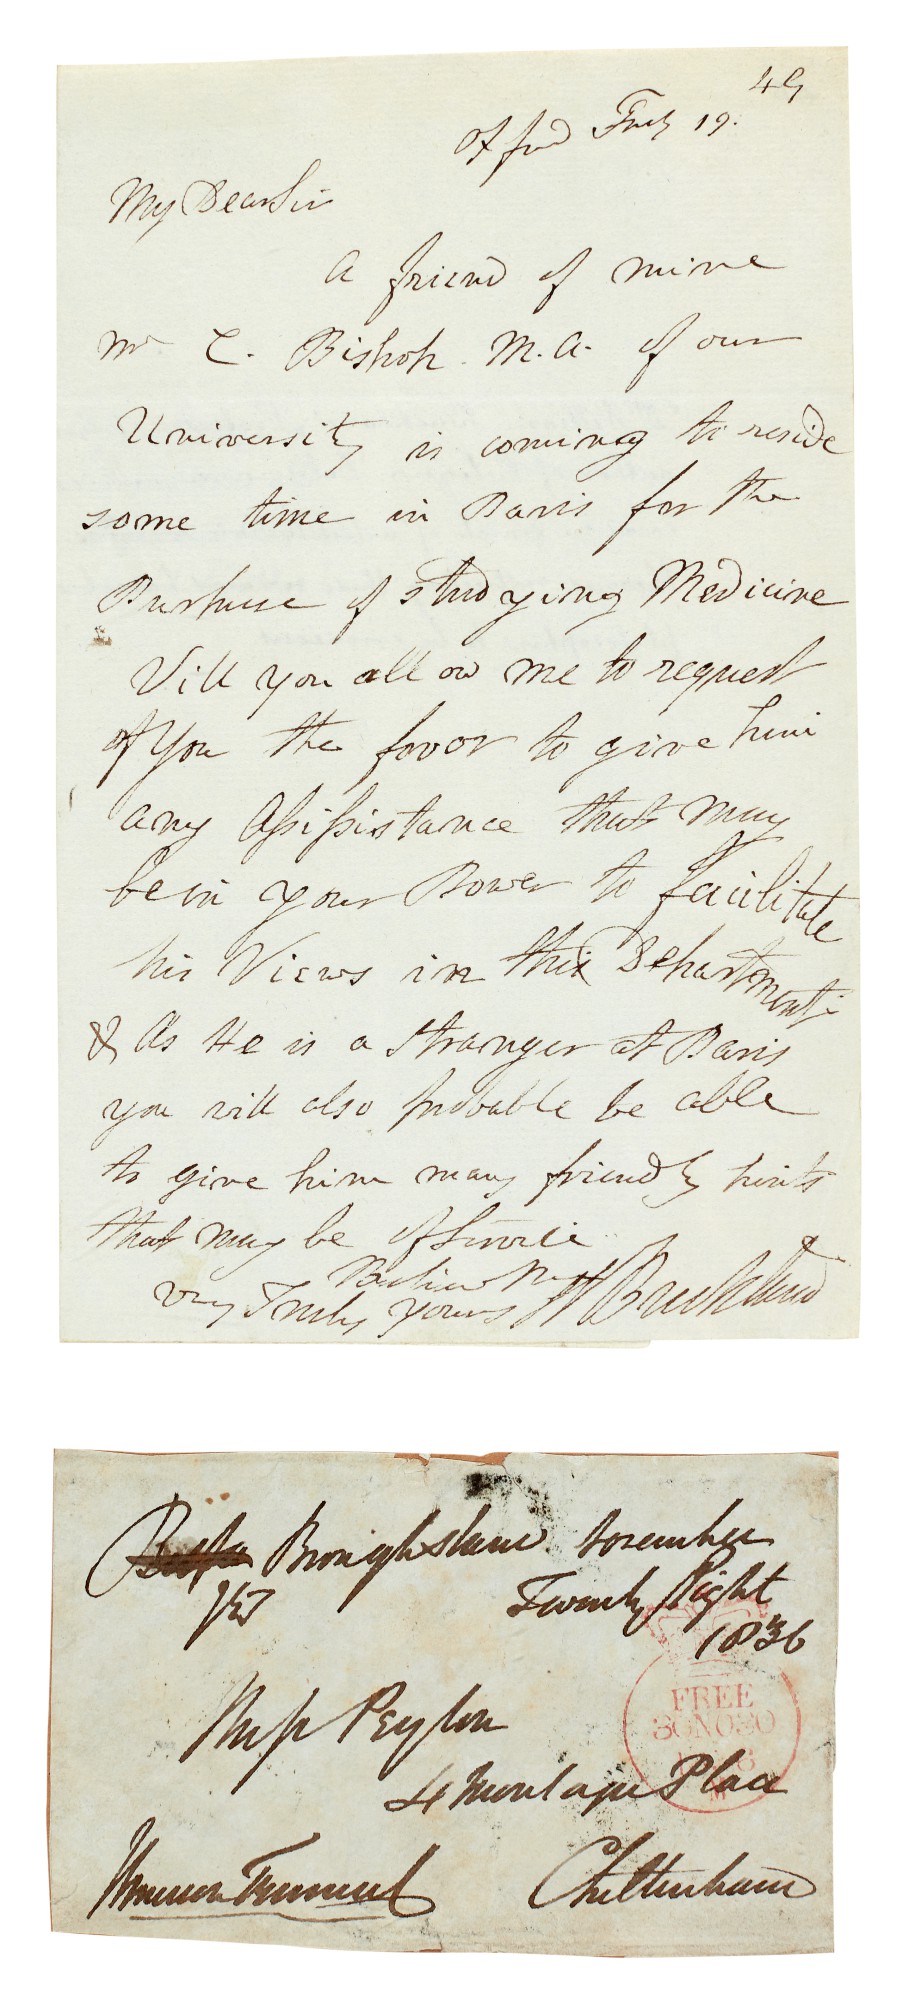 49
Oxford Feb 19.
My Dear Sir
A friend of mine
Mr C. Bishop M.A. of our
University is coming to reside
some time in Paris for the
Purpuse of studying Medicine
Will you allow me to request
of You the favor to give him
any Assistance that may
be in your Power to facilitate
his Views in this Department
& As He is a stranger at Paris
you will also probable be able
to give him many friendly hints
that may be of Service
very Truly yours W Buckland
Broughshane November
Twenty Eight
1836
Miss Peyton
4 Montague Place
Cheltenham
FREE
30NO30